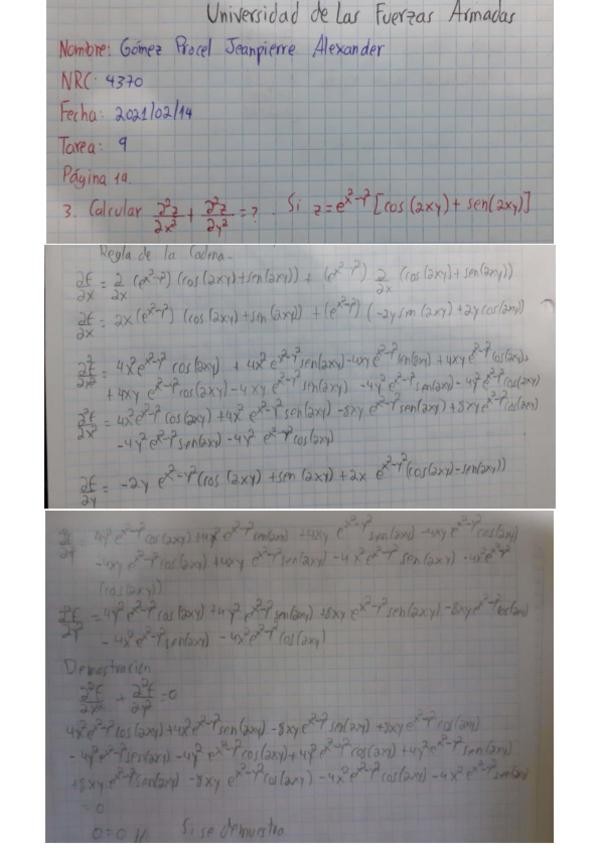 Universidad de las Fuerzas Armadas
Nombre: Gómez Procel Jeanpierre Alexander
NRC: 4370
Fecha: 2021/02/14
Tarea: 9
Página 19.
3. Calcular ∂²z/∂x² + ∂²z/∂y² = ? . Si z = e^(x²-y²) [cos(2xy) + sen(2xy)]
Regla de la Cadena.
∂f/∂x = ∂/∂x (e^(x²-y²)) (cos(2xy) + sen(2xy)) + (e^(x²-y²)) ∂/∂x (cos(2xy) + sen(2xy))
∂f/∂x = 2x(e^(x²-y²)) (cos(2xy) + sen(2xy)) + (e^(x²-y²)) (-2y sen(2xy) + 2y cos(2xy))
∂²f/∂x² = 4x² e^(x²-y²) cos(2xy) + 4x² e^(x²-y²) sen(2xy) - 4xy e^(x²-y²) sen(2xy) + 4xy e^(x²-y²) cos(2xy)
+ 4xy e^(x²-y²) cos(2xy) - 4xy e^(x²-y²) sen(2xy) - 4y² e^(x²-y²) sen(2xy) - 4y² e^(x²-y²) cos(2xy)
∂²f/∂x² = 4x² e^(x²-y²) cos(2xy) + 4x² e^(x²-y²) sen(2xy) - 8xy e^(x²-y²) sen(2xy) + 8xy e^(x²-y²) cos(2xy)
- 4y² e^(x²-y²) sen(2xy) - 4y² e^(x²-y²) cos(2xy)
∂f/∂y = -2y e^(x²-y²) (cos(2xy) + sen(2xy) + 2x e^(x²-y²) (cos(2xy) - sen(2xy))
= 4y² e^(x²-y²) cos(2xy) + 4y² e^(x²-y²) sen(2xy) + 4xy e^(x²-y²) sen(2xy) - 4xy e^(x²-y²) cos(2xy)
- 4xy e^(x²-y²) cos(2xy) + 4xy e^(x²-y²) sen(2xy) - 4x² e^(x²-y²) sen(2xy) - 4x² e^(x²-y²)
(cos(2xy))
∂²f/∂y² = 4y² e^(x²-y²) cos(2xy) + 4y² e^(x²-y²) sen(2xy) + 8xy e^(x²-y²) sen(2xy) - 8xy e^(x²-y²) cos(2xy)
- 4x² e^(x²-y²) sen(2xy) - 4x² e^(x²-y²) cos(2xy)
Demostración
∂²f/∂x² + ∂²f/∂y² = 0
4x² e^(x²-y²) cos(2xy) + 4x² e^(x²-y²) sen(2xy) - 8xy e^(x²-y²) sen(2xy) + 8xy e^(x²-y²) cos(2xy)
- 4y² e^(x²-y²) sen(2xy) - 4y² e^(x²-y²) cos(2xy) + 4y² e^(x²-y²) cos(2xy) + 4y² e^(x²-y²) sen(2xy)
+ 8xy e^(x²-y²) sen(2xy) - 8xy e^(x²-y²) cos(2xy) - 4x² e^(x²-y²) cos(2xy) - 4x² e^(x²-y²) sen(2xy)
= 0
0 = 0 // Si se demuestra